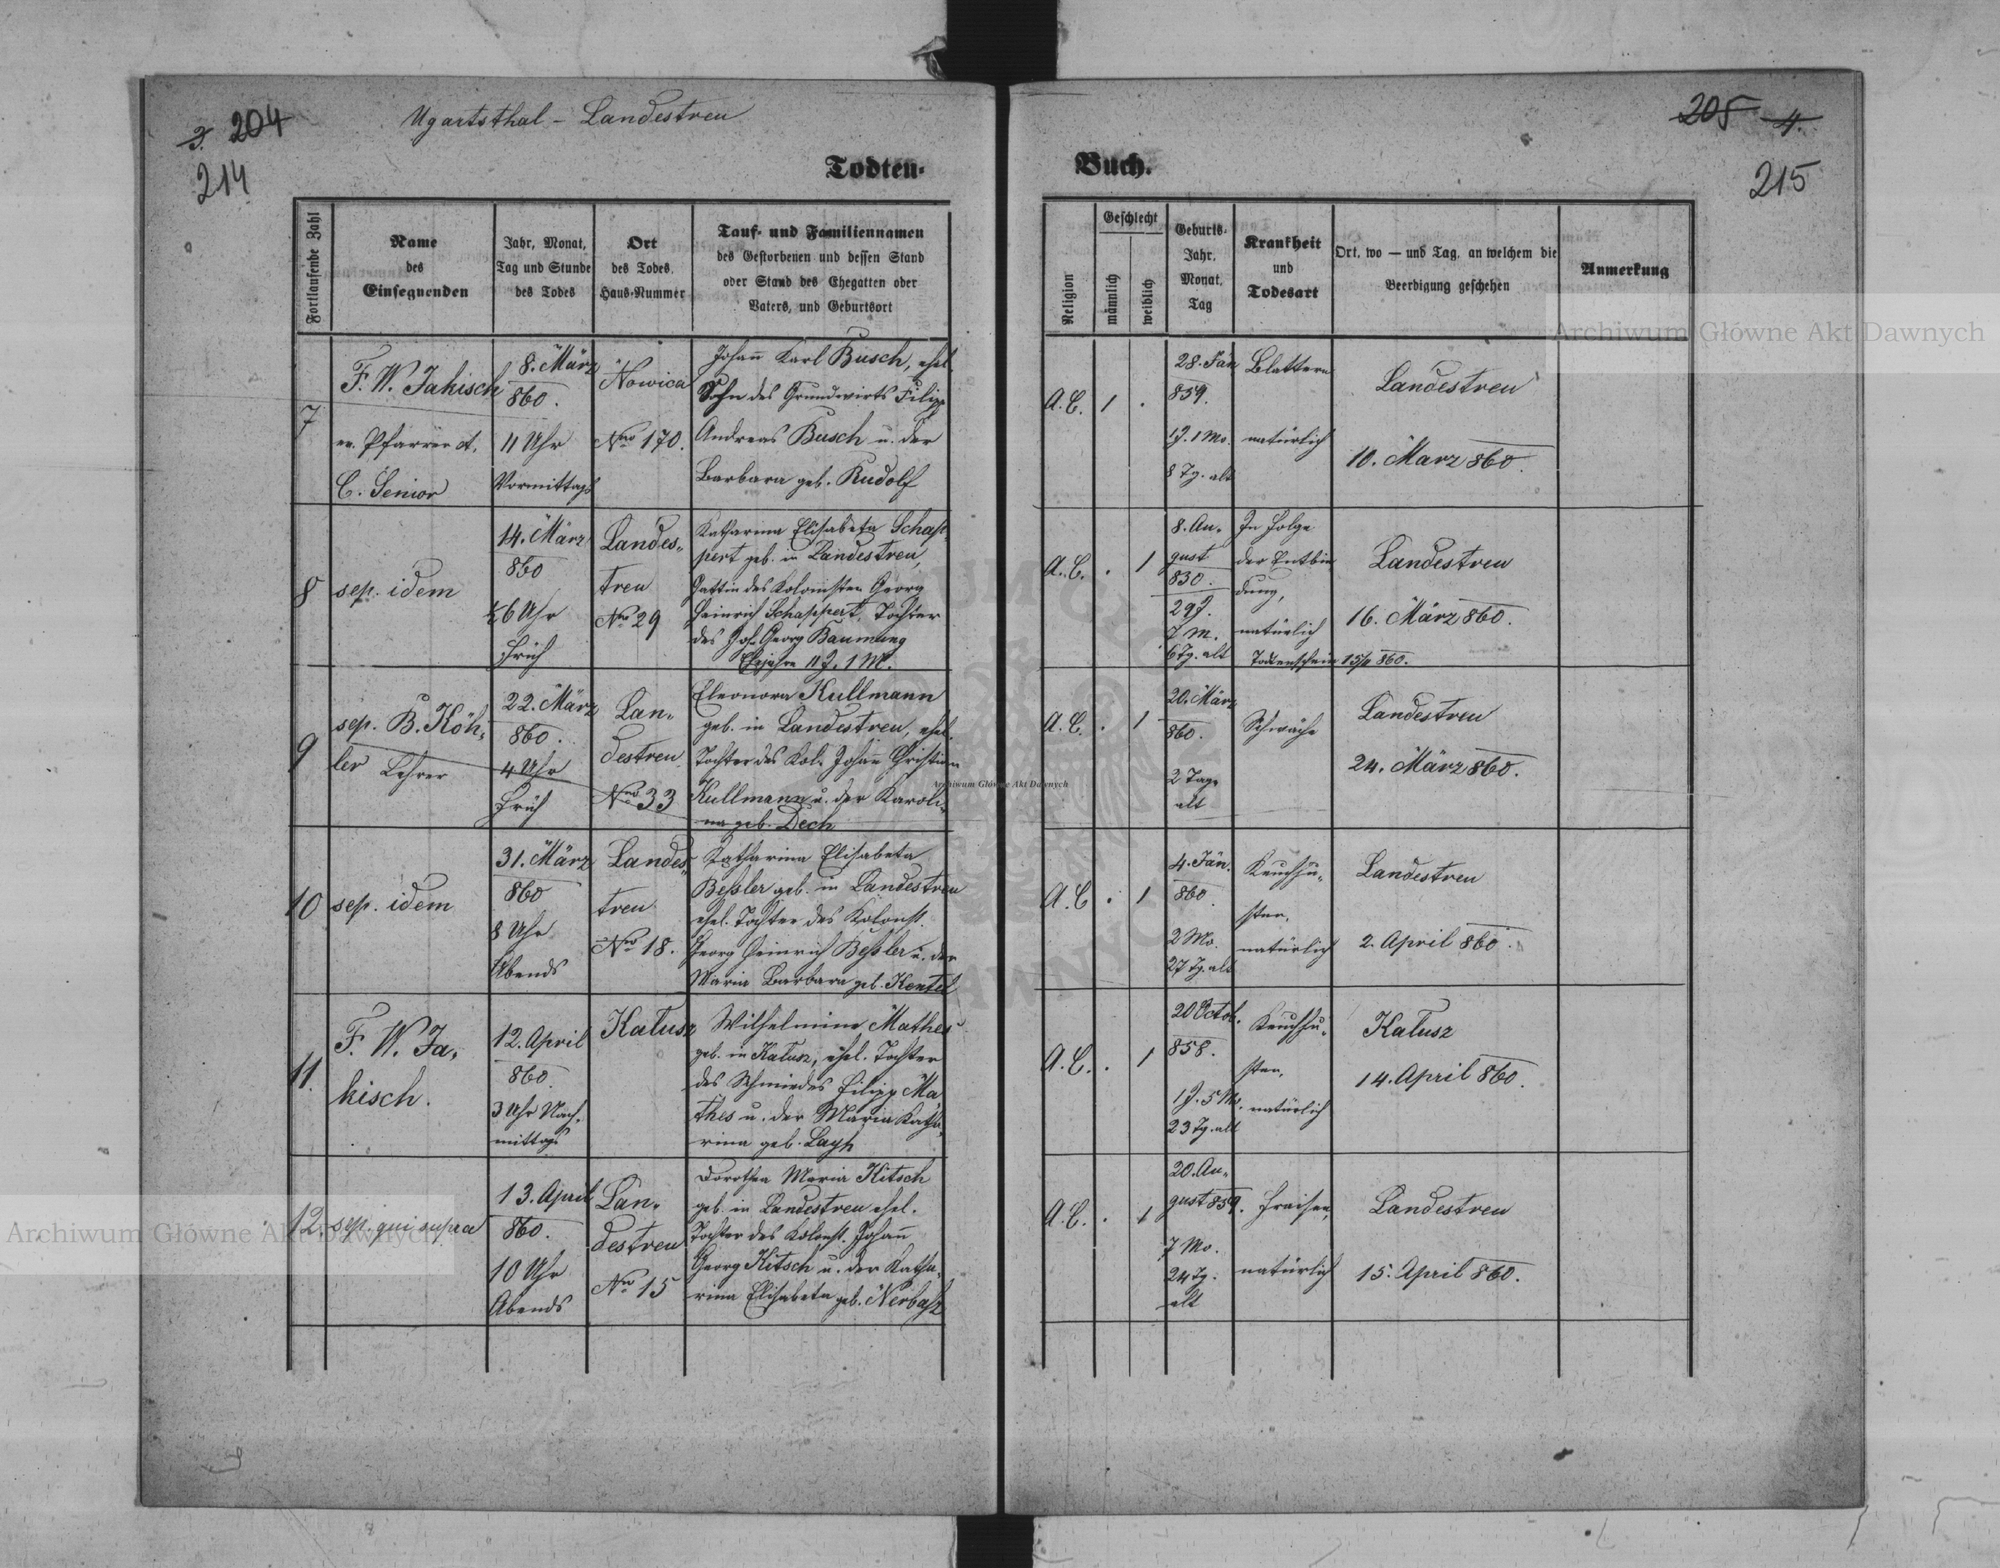 3. 204
214
Ugartsthal - Landestreu
205 4.
215
Todten-
Buch.
Fortlaufende Zahl
Name
des
Einsegnenden
Jahr, Monat,
Tag und Stunde
des Todes
Ort
des Todes,
Haus-Nummer
Tauf- und Familiennamen
des Gestorbenen und dessen Stand
oder Stand des Ehegatten oder
Vaters, und Geburtsort
Religion
Geschlecht
männlich
weiblich
Geburts-
Jahr,
Monat,
Tag
Krankheit
und
Todesart
Ort, wo — und Tag, an welchem die
Beerdigung geschehen
Anmerkung
7
F. W. Jakisch
ev. Pfarrer A.
C. Senior
8. März
860.
11 Uhr
Vormittags
Nowica
Nro 170.
Johann Karl Busch, ehel.
Sohn des Grundwirts Filipp
Andreas Busch u. der
Barbara geb. Rudolf
A. C.
1
.
28. Jän
859.
1 J. 1 Mo.
8 Tg. alt
Blattern
natürlich
Landestreu
10. März 860.
8
sep. idem
14. März
860
½6 Uhr
Früh
Landes-
treu
Nro 29
Katharina Elisabeta Schap-
pert geb. in Landestreu,
Gattin des Kolonisten Georg
Heinrich Schappert, Tochter
des Joh. Georg Baumung
Ehejahre 11 J. 1 M.
A. C.
.
1
8. Au-
gust
830.
29 J.
7 M.
6 Tg. alt
In Folge
der Entbin
dung,
natürlich
Todtenschein 15/3 860.
Landestreu
16. März 860.
9
sep. B. Köh-
ler Lehrer
22. März
860.
4 Uhr
Früh
Lan-
destreu
Nro 33
Eleonora Kullmann
geb. in Landestreu, ehel.
Tochter des Kol. Johann Christian
Kullmann u. der Karoli-
na geb. Dech
A. C.
.
1
20. März
860.
2 Tage
alt
Schwäche
Landestreu
24. März 860.
10
sep. idem
31. März
860
8 Uhr
Abends
Landes-
treu
Nro 18.
Katharina Elisabeta
Beßler geb. in Landestreu
ehel. Tochter des Kolonist.
Georg Heinrich Beßler u. der
Maria Barbara geb. Kentel
A. C
.
1
4. Jän.
860.
2 Mo.
27 Tg. alt
Keuchhu-
sten,
natürlich
Landestreu
2. April 860.
11.
F. W. Ja-
kisch.
12. April
860.
3 Uhr Nach-
mittags
Kalusz
Wilhelmine Mathes
geb. in Kalusz, ehel. Tochter
des Schmiedes Filipp Ma
thes u. der Maria Katha-
rina geb.
A. C.
.
1
20 Octob.
858.
1 J. 5 Mo.
23 Tg. alt
Keuchhu-
sten,
natürlich
Kalusz
14. April 860.
12.
sep. qui supra
13. April
860.
10 Uhr
Abends
Lan-
destreu
Nro 15
Dorothea Maria Kitsch
geb. in Landestreu ehel.
Tochter des Kolonist. Johann
Georg Kitsch u. der Katha-
rina Elisabeta geb. Nerbaß
A. C.
.
1
20. Au-
gust 859.
7 Mo.
24 Tg.
alt
Fraisen,
natürlich
Landestreu
15. April 860.
Archiwum Główne Akt Dawnych
Archiwum Główne Akt Dawnych
Archiwum Główne Akt Dawnych